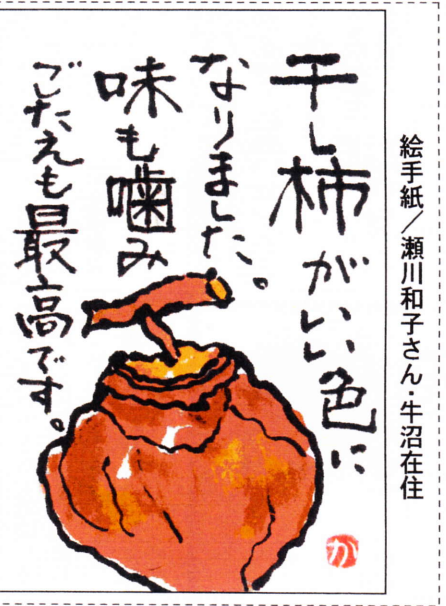 絵手紙／瀬川和子さん・牛沼在住
干し柿がいい色に
なりました。
味も噛み
ごたえも最高です。
か